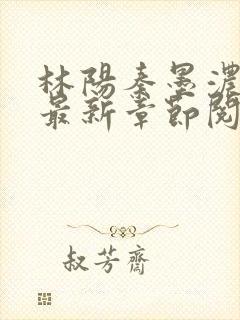 林陽秦墨濃
最新章節閱
叔芳齋